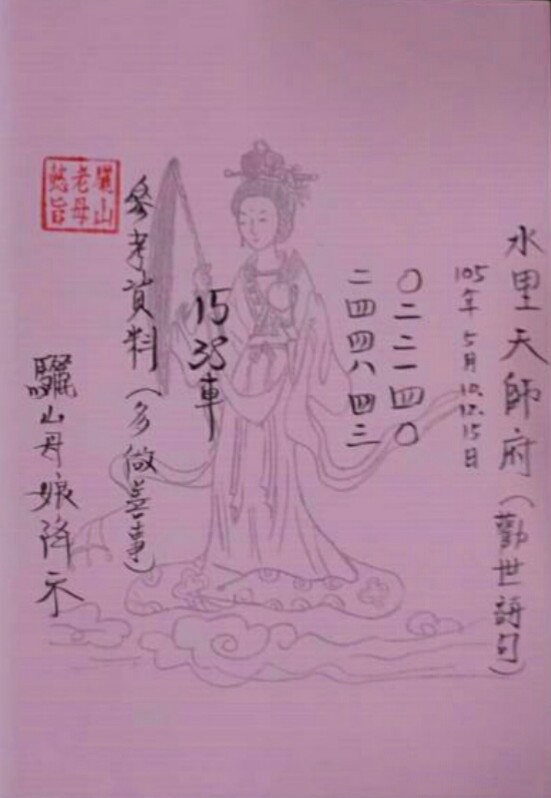 水里天師府(勸世詩句)
105年5月10.12.15日
〇二二一四〇
二四四八四三
15 35車
參考資料(多做善事)
驪山老母懿旨
驪山母娘降示